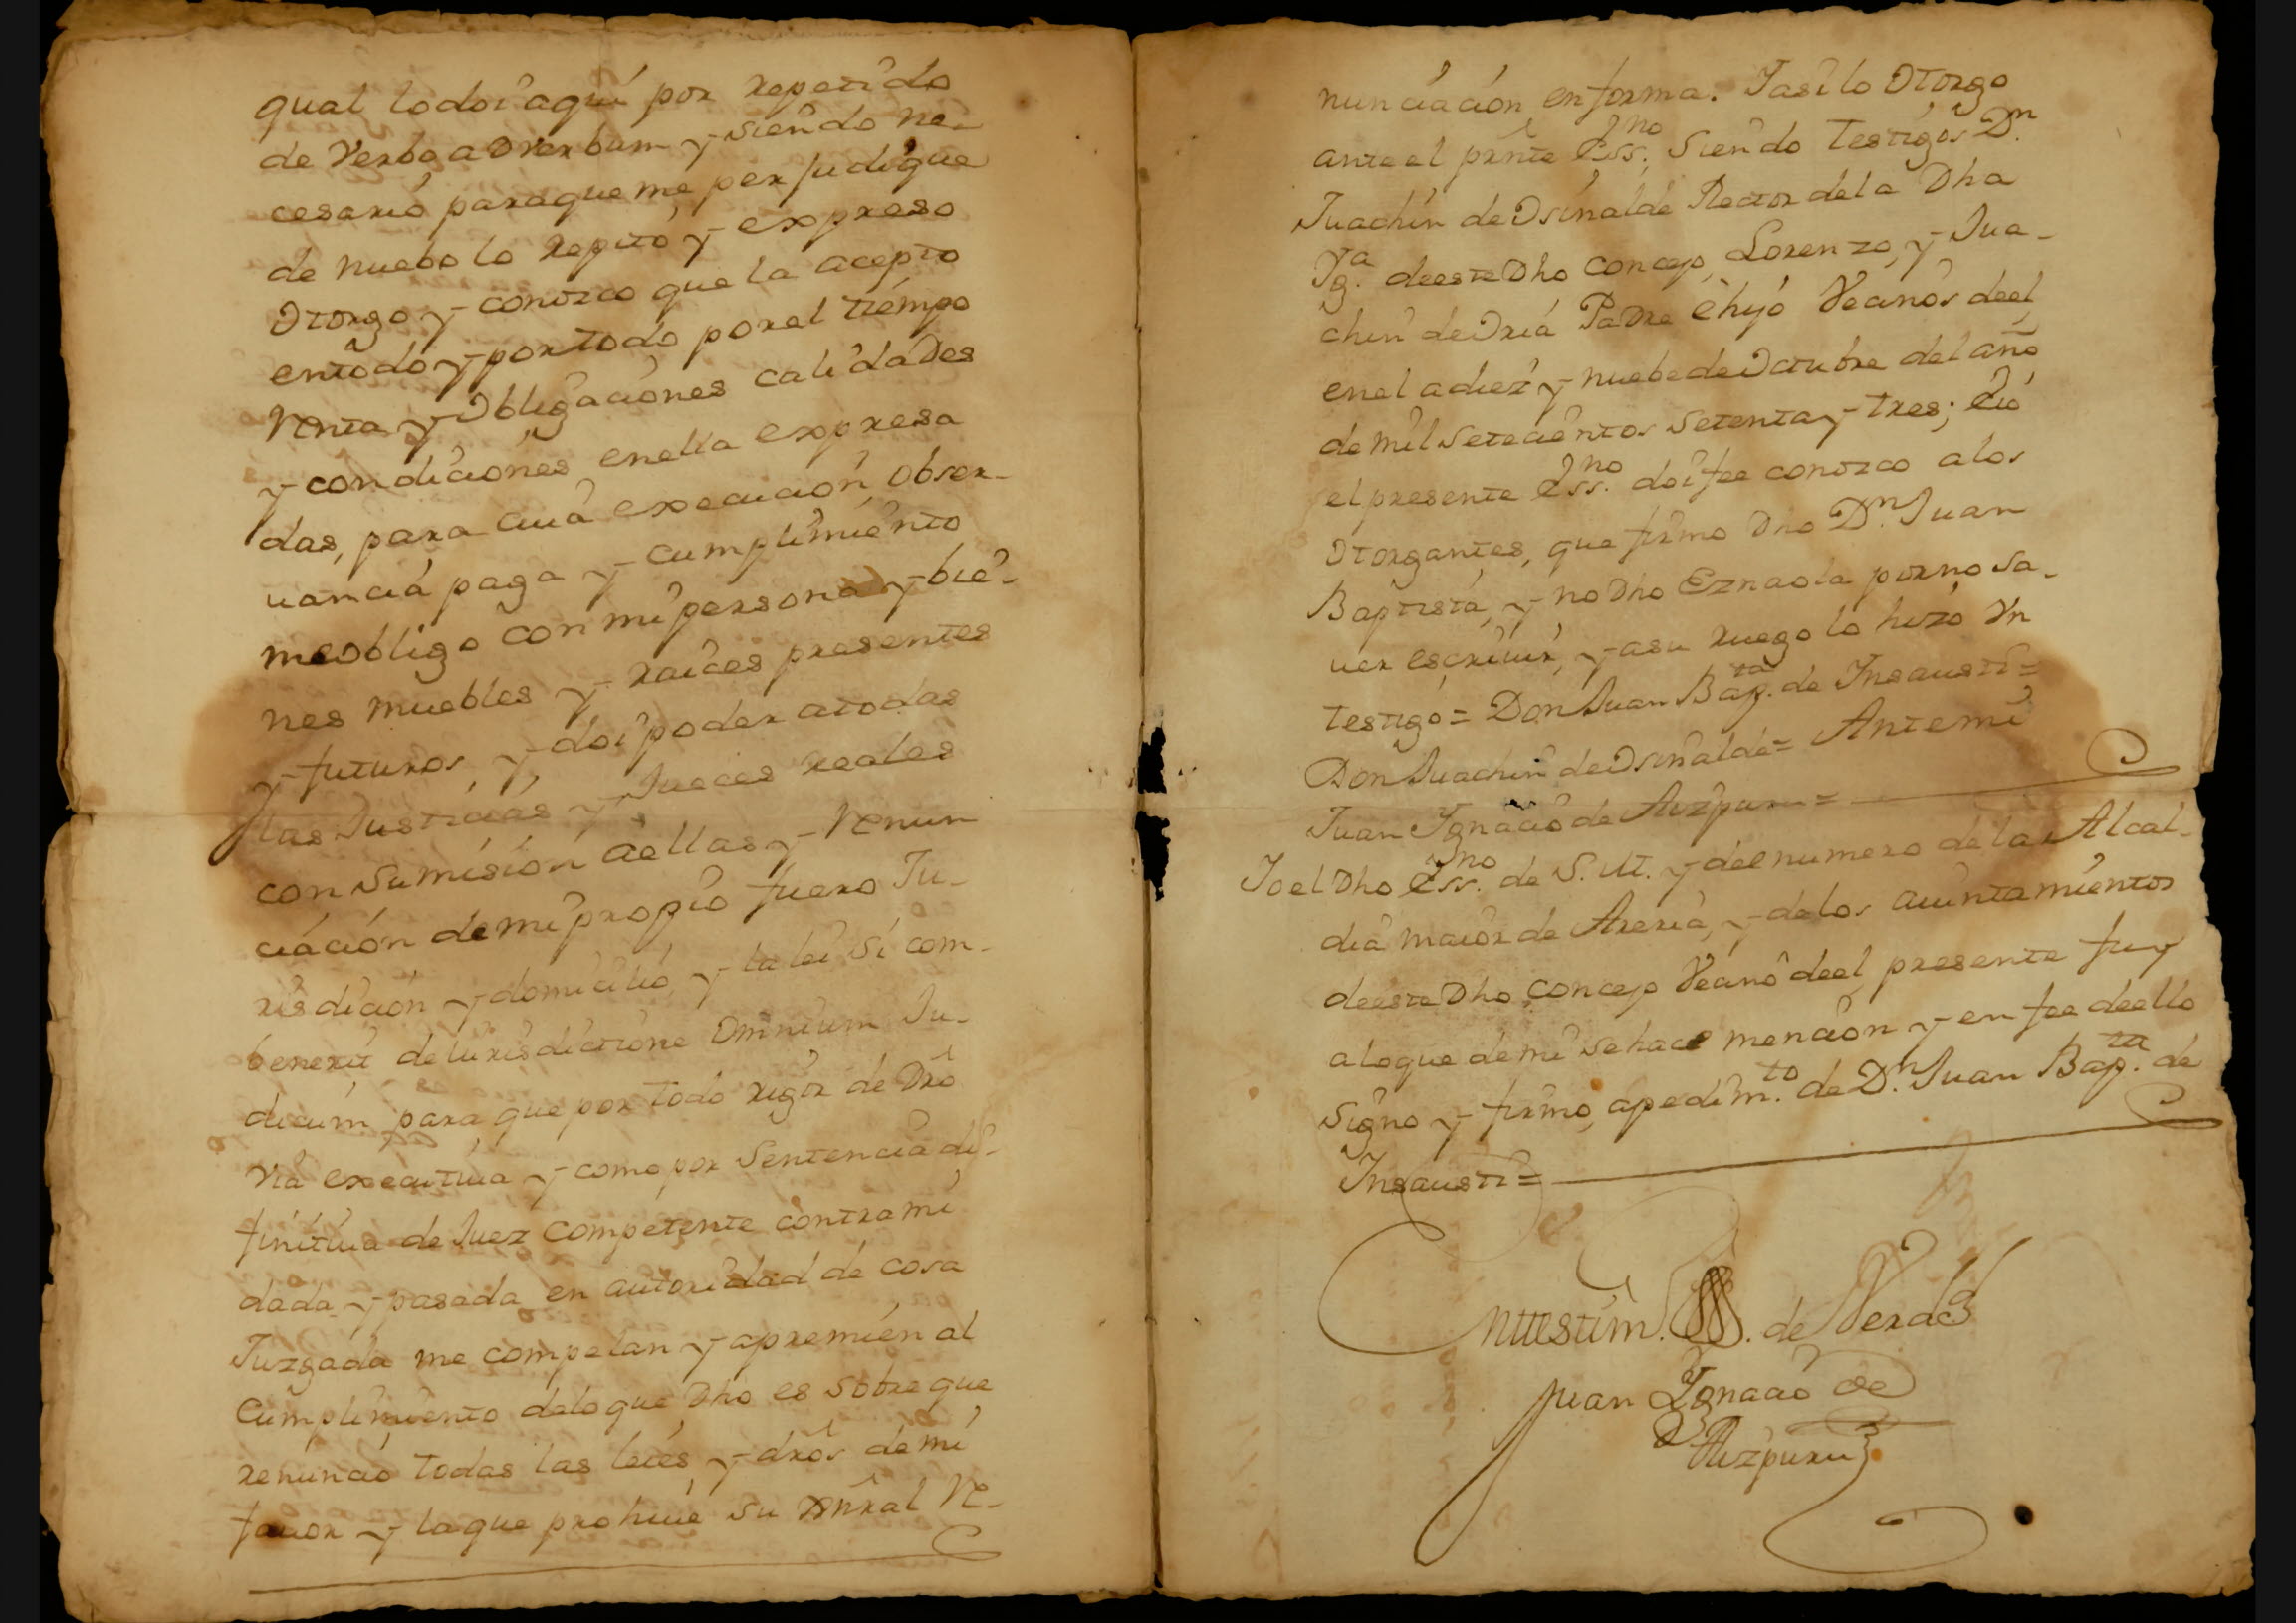 qual lodoi aqui por repetido
de Verbo adverbum y siendo ne-
cesario paraque me perjudique
de nuebo lo repito y expreso
Otorgo y conozco que la acepto
entodo y portodo porel tiempo
Renta y Obligaciones calidades
y condiciones enella expresa
das, para cuia execucion obser-
uancia paga y cumplimiento
meobligo con mi persona y bie-
nes muebles y raices presentes
y futuros, y doi poder atodas
las Justicias y Jueces reales
con sumision aellas y Renun
ciacion demi propio fuero Ju-
risdicion y domicilio, y la lei si com-
benerit deiurisdictione Omnium Ju-
dicum para que por todo rigor de Dro
via executiua y como por Sentencia di-
finitiua de Juez competente contra mi
dada y pasada en autoridad de cosa
Juzgada me compelan y apremien al
Cumplimiento deloque Dho es sobre que
renuncio todas las leies y dros de mi
fauor y laque prohiue su Gnral Re-
nunciacion enforma. Iasi lo Otorgo
ante el prnte Ess.no Siendo testigos Dn.
Juachin de Osinalde Rector dela Dha
Yg.a deeste Dho concejo, Lorenzo, y Jua-
chin de Oria Padre e hijo Vecinos deel,
enel a diez y nuebe de Octubre del año
de mil setecientos setenta y tres; e io
el presente Ess.no doi fee conozco alos
Otorgantes, que firmo Dho Dn. Juan
Baptista, y no Dho Eznaola porno sa-
uer escriuir, y asu ruego lo hizo Vn
testigo = Don Juan Bap.ta de Insausti =
Don Juachin de Osinalde = Antemi
Juan Ignacio de Aizpuru =
Io el Dho Ess.no de S. M. y del numero de la Alcal-
dia maior de Areria, y delos aiuntamientos
deeste Dho concejo Vecino deel, presente fuy
aloque demi sehace mencion y en fee deello
Signo y firmo, apedim.to de Dn. Juan Bap.ta de
Insausti =
En testim. de Verdad
Juan Ignacio de
Aizpuru